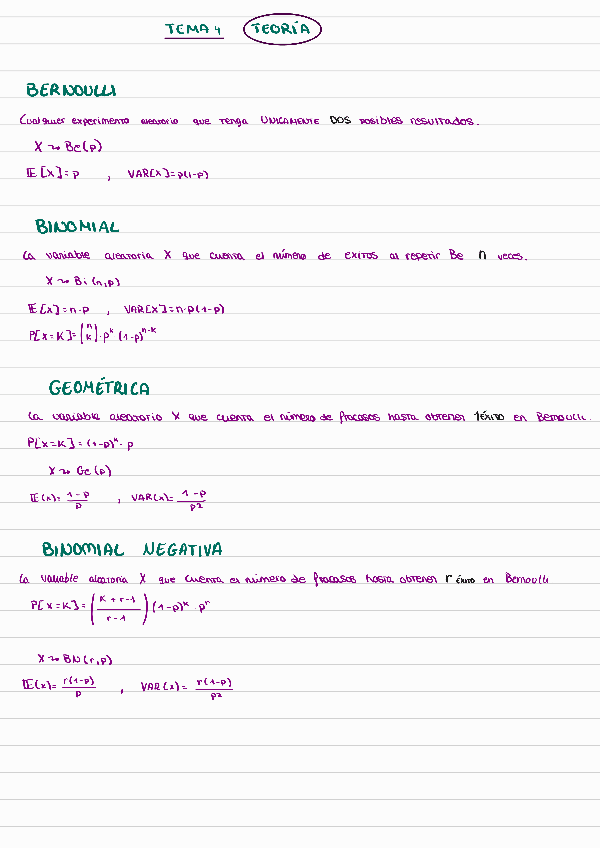 TEMA 4 TEORÍA
BERNOULLI
Cualquier experimento aleatorio que tenga UNICAMENTE DOS posibles resultados.
X ~> Be(p)
E[X]=p , VAR[X]=p(1-p)
BINOMIAL
La variable aleatoria X que cuenta el número de exitos al repetir Be n veces.
X ~> Bi(n,p)
E[X]=n·p , VAR[X]=n·p(1-p)
P[X=K]=(n k)·p^k (1-p)^n-k
GEOMÉTRICA
La variable aleatorio X que cuenta el número de fracasos hasta obtener 1 éxito en Bernoulli.
P[X=K]=(1-p)^k·p
X ~> Ge(p)
E(x)= 1-p/p , VAR(x)= 1-p/p²
BINOMIAL NEGATIVA
La variable aleatoria X que cuenta el número de fracasos hasta obtener r éxito en Bernoulli
P[X=K]=(K+r-1/r-1)(1-p)^k·p^r
X ~> BN(r,p)
E(x)= r(1-p)/p , VAR(x)= r(1-p)/p²